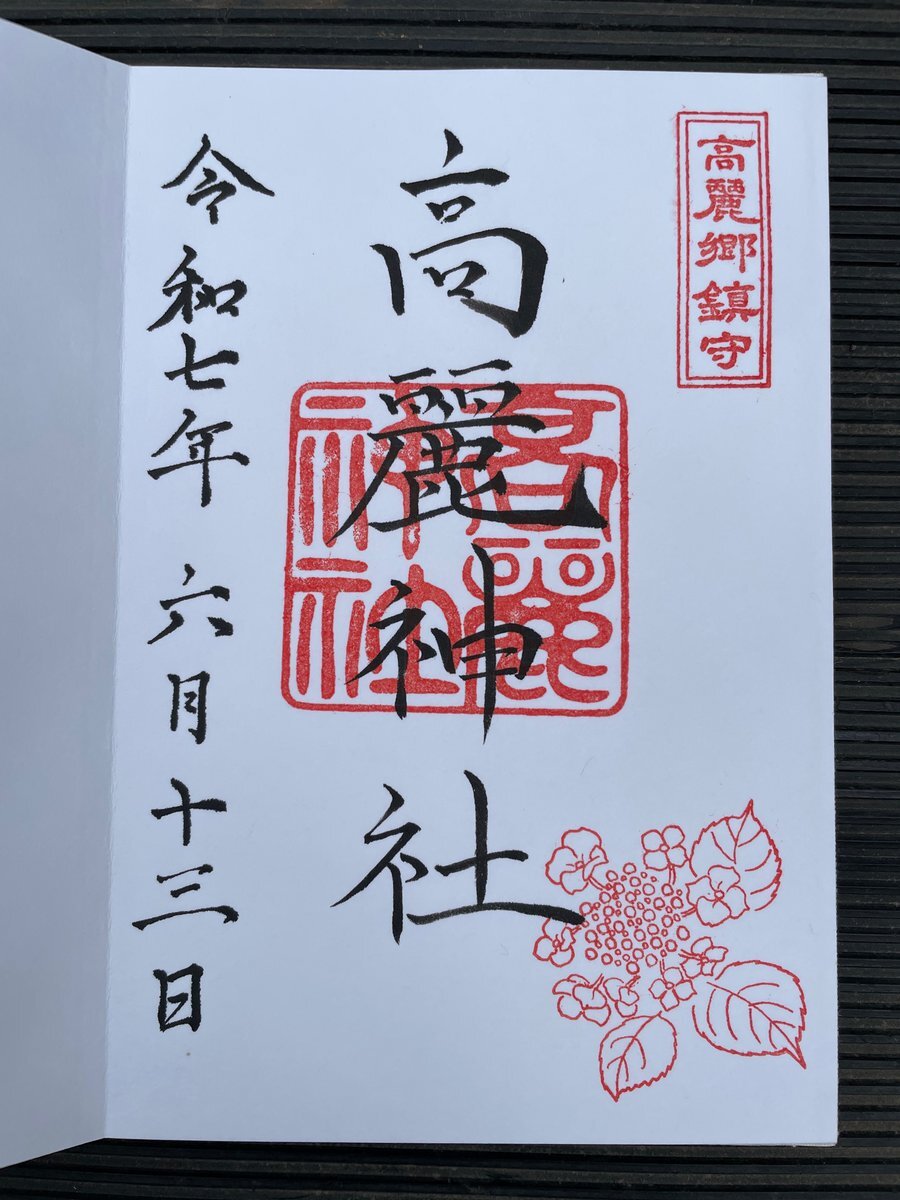 高麗郷鎮守
高麗神社
高麗
神社
令和七年六月十三日